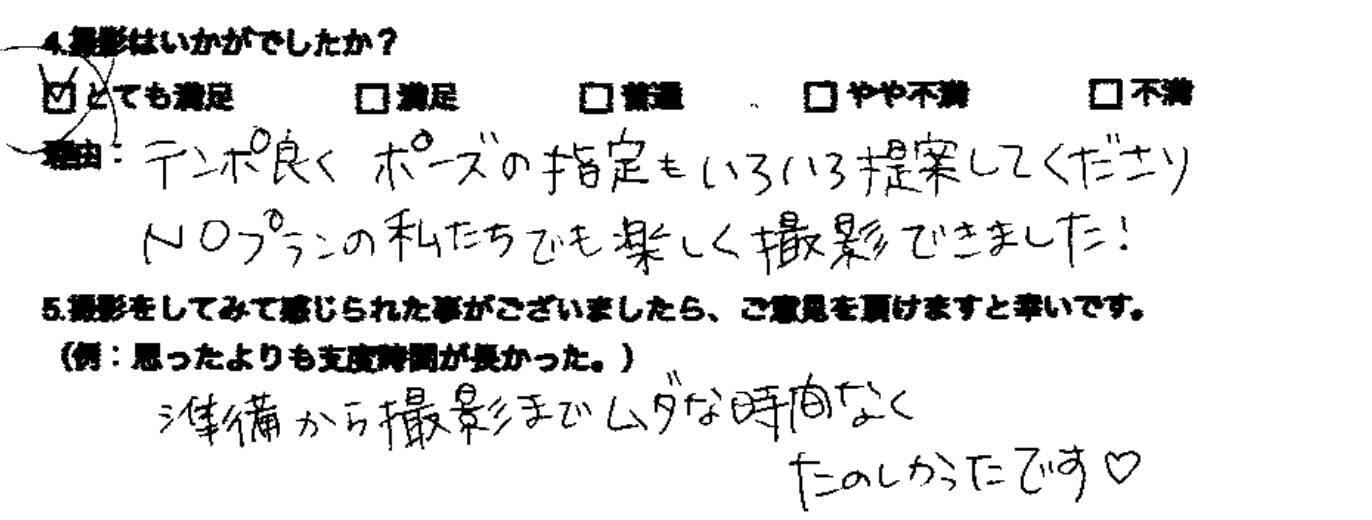 4.撮影はいかがでしたか？
☑とても満足 □満足 □普通 □やや不満 □不満
理由：テンポ良く ポーズの指定もいろいろ提案してくださり
NOプランの私たちでも楽しく撮影できました！
5.撮影をしてみて感じられた事がございましたら、ご意見を頂けますと幸いです。
（例：思ったよりも支度時間が長かった。）
準備から撮影までムダな時間なく
たのしかったです♡